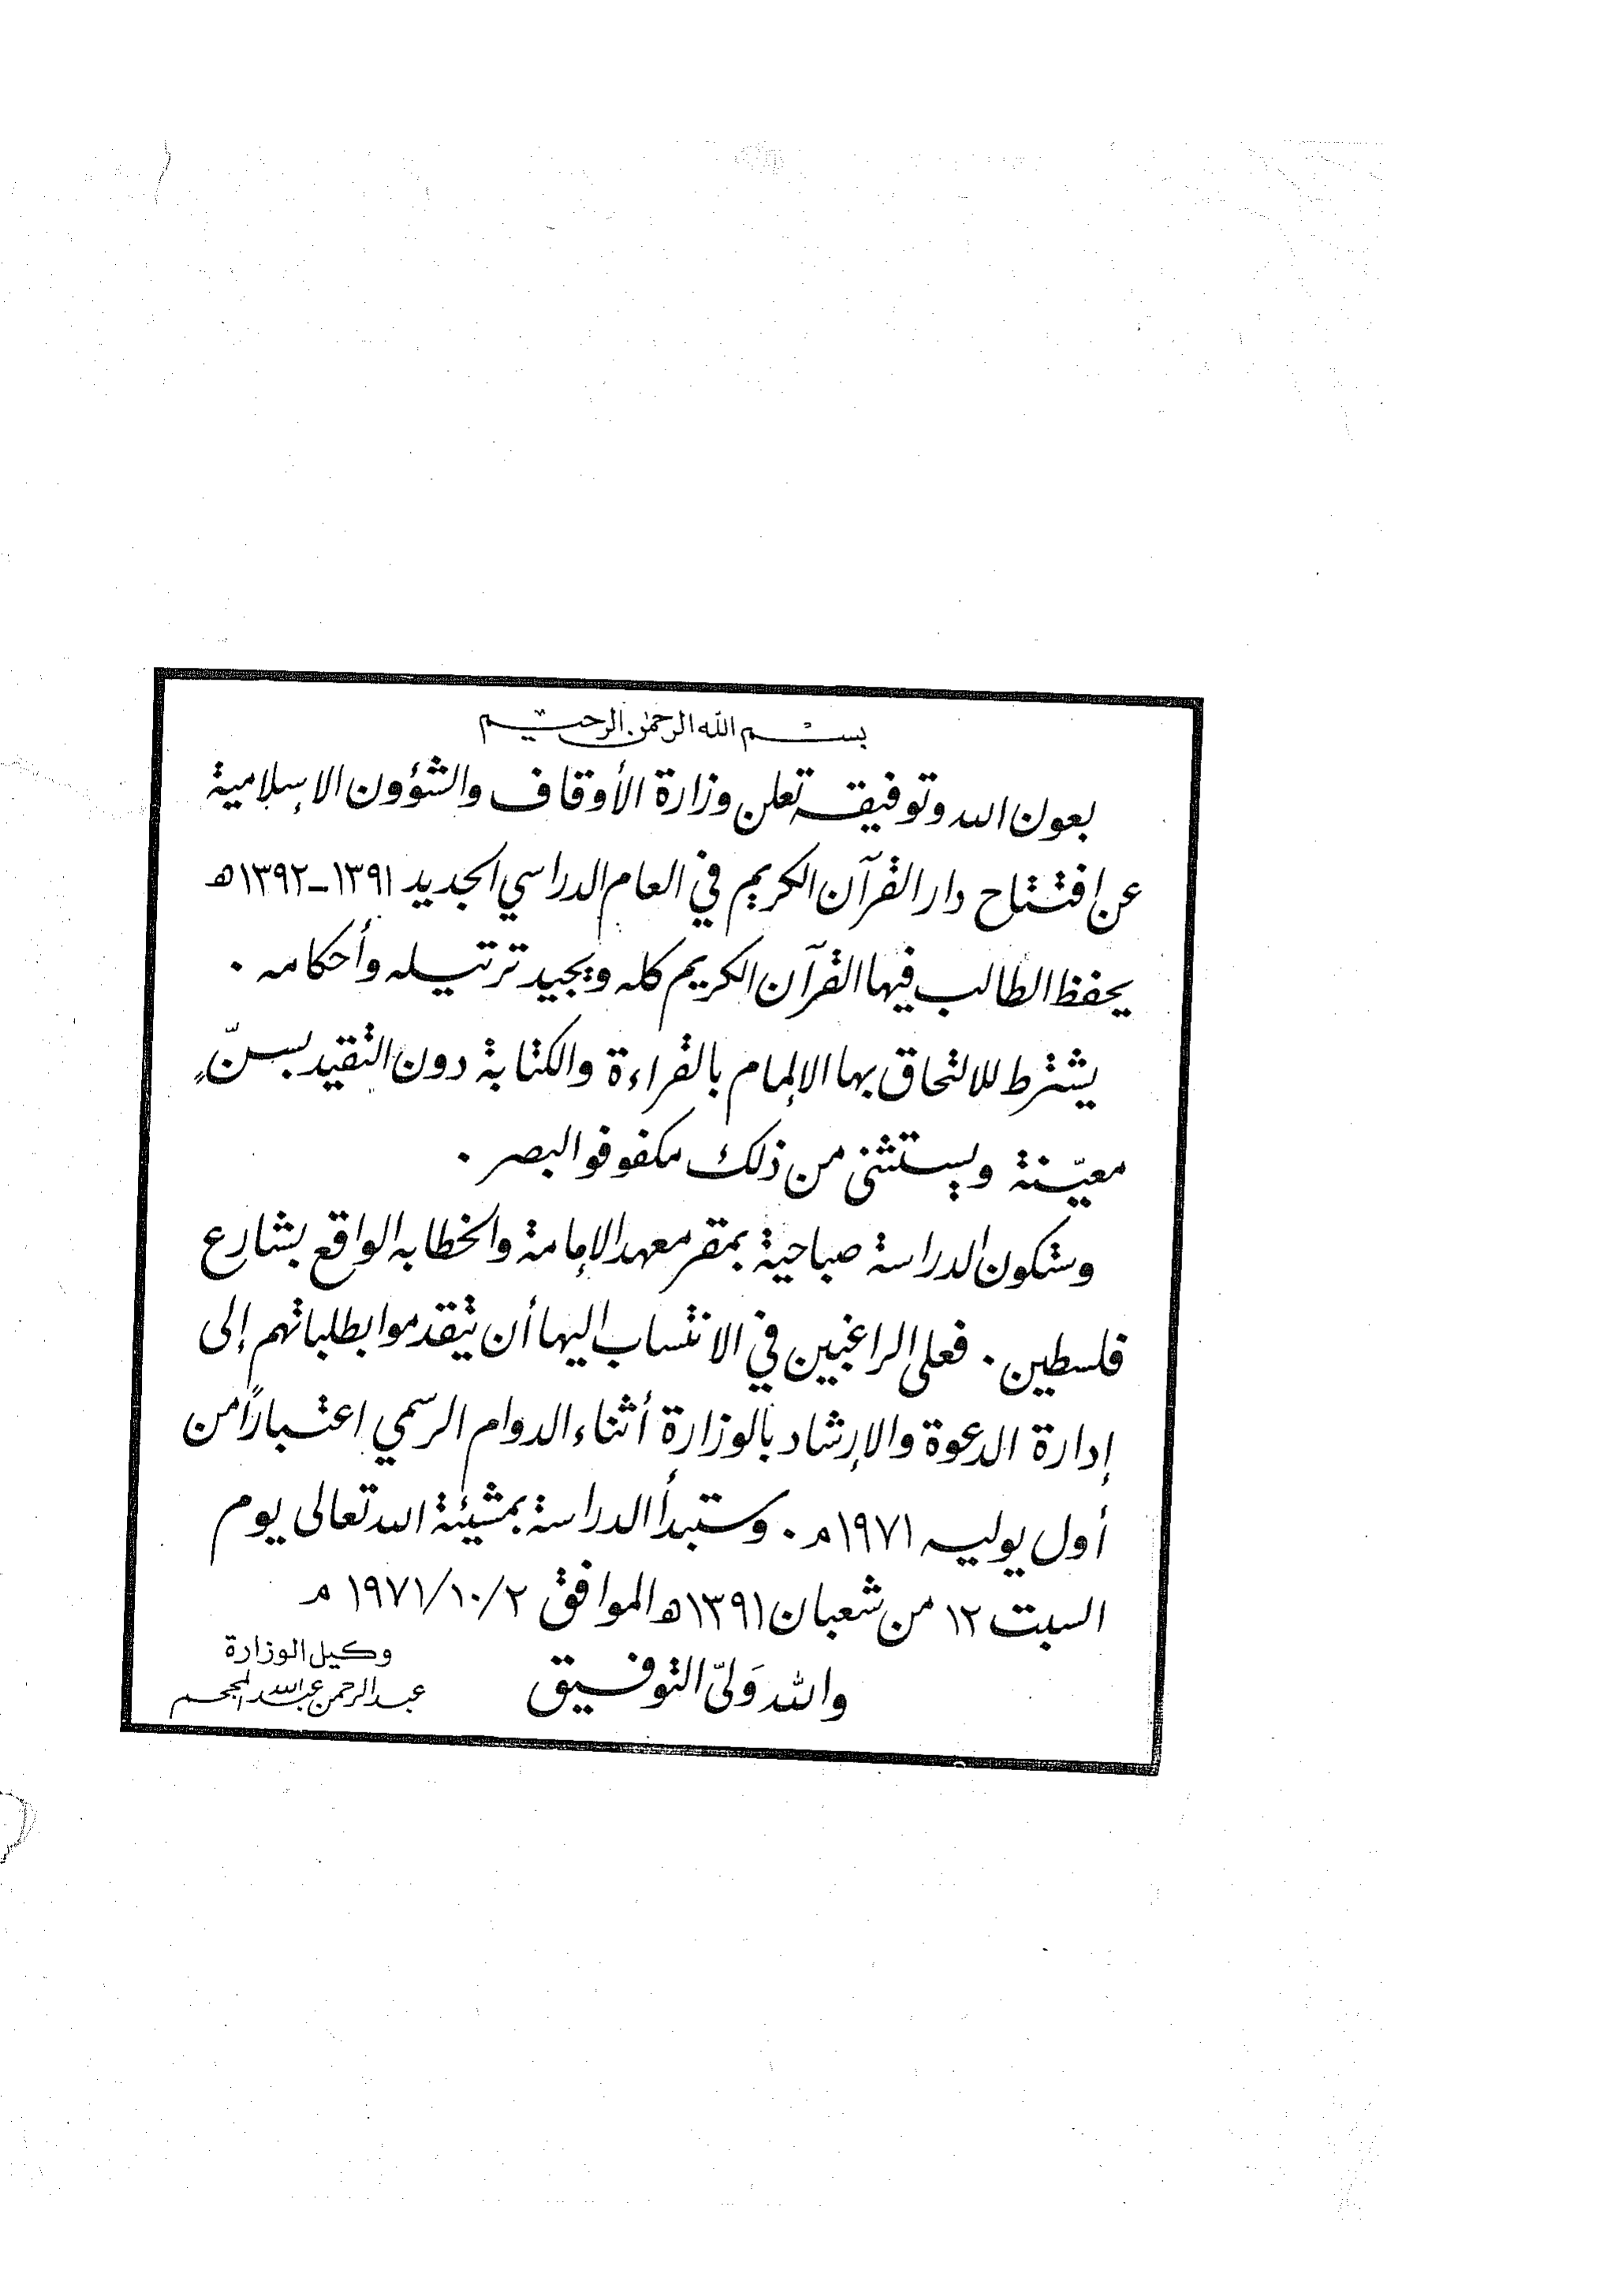 بسم الله الرحمن الرحيم
بعون الله وتوفيقه تعلن وزارة الأوقاف والشؤون الإسلامية
عن افتتاح دار القرآن الكريم في العام الدراسي الجديد ١٣٩١-١٣٩٢ه
يحفظ الطالب فيها القرآن الكريم كله ويجيد ترتيله وأحكامه .
يشترط للالتحاق بها الإلمام بالقراءة والكتابة دون التقيد بسنّ
معيّنة ويستثنى من ذلك مكفوفو البصر .
وستكون الدراسة صباحية بمقر معهد الإمامة والخطابه الواقع بشارع
فلسطين . فعلى الراغبين في الانتساب اليها أن يتقدموا بطلباتهم إلى
إدارة الدعوة والإرشاد بالوزارة أثناء الدوام الرسمي اعتباراً من
أول يوليه ١٩٧١م . وستبدأ الدراسة بمشيئة الله تعالى يوم
السبت ١٢ من شعبان ١٣٩١ه الموافق ١٩٧١/١٠/٢ م
والله وَليّ التوفيق
وكيل الوزارة
عبد الرحمن عبدالله المجحم